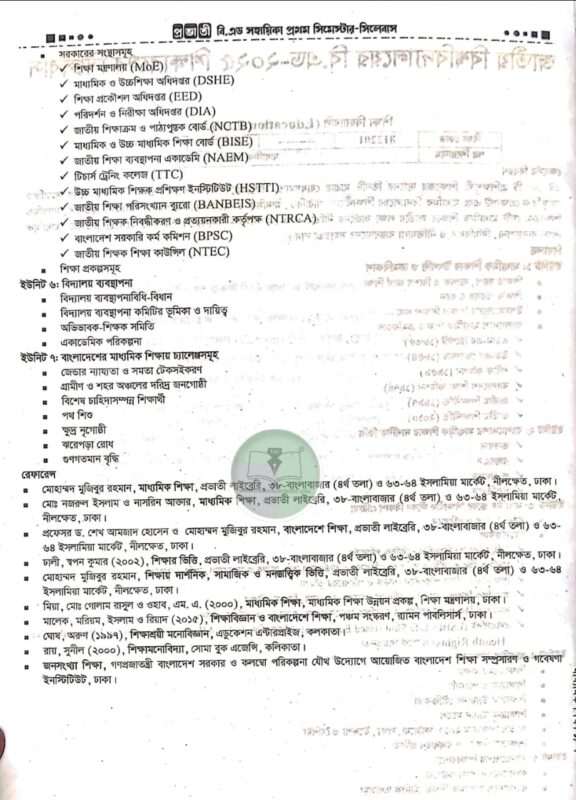 প্রভাতী বি.এড সহায়িকা প্রথম সিমেস্টার-সিলেবাস
▪ সরকারের সংস্থাসমূহ
✓ শিক্ষা মন্ত্রণালয় (MoE)
✓ মাধ্যমিক ও উচ্চশিক্ষা অধিদপ্তর (DSHE)
✓ শিক্ষা প্রকৌশল অধিদপ্তর (EED)
✓ পরিদর্শন ও নিরীক্ষা অধিদপ্তর (DIA)
✓ জাতীয় শিক্ষাক্রম ও পাঠ্যপুস্তক বোর্ড (NCTB)
✓ মাধ্যমিক ও উচ্চ মাধ্যমিক শিক্ষা বোর্ড (BISE)
✓ জাতীয় শিক্ষা ব্যবস্থাপনা একাডেমি (NAEM)
✓ টিচার্স ট্রেনিং কলেজ (TTC)
✓ উচ্চ মাধ্যমিক শিক্ষক প্রশিক্ষণ ইনস্টিটিউট (HSTTI)
✓ জাতীয় শিক্ষা পরিসংখ্যান ব্যুরো (BANBEIS)
✓ জাতীয় শিক্ষক নিবন্ধীকরণ ও প্রত্যয়নকারী কর্তৃপক্ষ (NTRCA)
✓ বাংলাদেশ সরকারি কর্ম কমিশন (BPSC)
✓ জাতীয় শিক্ষক শিক্ষা কাউন্সিল (NTEC)
▪ শিক্ষা প্রকল্পসমূহ
ইউনিট ৬: বিদ্যালয় ব্যবস্থাপনা
▪ বিদ্যালয় ব্যবস্থাপনাবিধি-বিধান
▪ বিদ্যালয় ব্যবস্থাপনা কমিটির ভূমিকা ও দায়িত্ব
▪ অভিভাবক-শিক্ষক সমিতি
▪ একাডেমিক পরিকল্পনা
ইউনিট ৭: বাংলাদেশের মাধ্যমিক শিক্ষায় চ্যালেঞ্জসমূহ
▪ জেন্ডার ন্যায্যতা ও সমতা টেকসইকরণ
▪ গ্রামীণ ও শহর অঞ্চলের দরিদ্র জনগোষ্ঠী
▪ বিশেষ চাহিদাসম্পন্ন শিক্ষার্থী
▪ পথ শিশু
▪ ক্ষুদ্র নৃগোষ্ঠী
▪ ঝরেপড়া রোধ
▪ গুণগতমান বৃদ্ধি
রেফারেন্স
▪ মোহাম্মদ মুজিবুর রহমান, মাধ্যমিক শিক্ষা, প্রভাতী লাইব্রেরি, ৩৮-বাংলাবাজার (৪র্থ তলা) ও ৬৩-৬৪ ইসলামিয়া মার্কেট, নীলক্ষেত, ঢাকা।
▪ মোঃ নজরুল ইসলাম ও নাসরিন আক্তার, মাধ্যমিক শিক্ষা, প্রভাতী লাইব্রেরি, ৩৮-বাংলাবাজার (৪র্থ তলা) ও ৬৩-৬৪ ইসলামিয়া মার্কেট,
নীলক্ষেত, ঢাকা।
▪ প্রফেসর ড. শেখ আমজাদ হোসেন ও মোহাম্মদ মুজিবুর রহমান, বাংলাদেশে শিক্ষা, প্রভাতী লাইব্রেরি, ৩৮-বাংলাবাজার (৪র্থ তলা) ও ৬৩-
৬৪ ইসলামিয়া মার্কেট, নীলক্ষেত, ঢাকা।
▪ ঢালী, স্বপন কুমার (২০০২), শিক্ষার ভিত্তি, প্রভাতী লাইব্রেরি, ৩৮-বাংলাবাজার (৪র্থ তলা) ও ৬৩-৬৪ ইসলামিয়া মার্কেট, নীলক্ষেত, ঢাকা।
▪ মোহাম্মদ মুজিবুর রহমান, শিক্ষায় দার্শনিক, সামাজিক ও মনস্তাত্ত্বিক ভিত্তি, প্রভাতী লাইব্রেরি, ৩৮-বাংলাবাজার (৪র্থ তলা) ও ৬৩-৬৪
ইসলামিয়া মার্কেট, নীলক্ষেত, ঢাকা।
▪ মিয়া, মোঃ গোলাম রাসুল ও ওহাব, এম. এ. (২০০০), মাধ্যমিক শিক্ষা, মাধ্যমিক শিক্ষা উন্নয়ন প্রকল্প, শিক্ষা মন্ত্রণালয়, ঢাকা।
▪ মালেক, মরিয়ম, ইসলাম ও রিয়াদ (২০১৫), শিক্ষাবিজ্ঞান ও বাংলাদেশে শিক্ষা, পঞ্চম সংস্করণ, র‍্যামন পাবলিসার্স, ঢাকা।
▪ ঘোষ, অরুণ (১৯৯৭), শিক্ষাশ্রয়ী মনোবিজ্ঞান, এডুকেশন এন্টারপ্রাইজ, কলকাতা।
▪ রায়, সুনীল (২০০০), শিক্ষামনোবিদ্যা, সোমা বুক এজেন্সি, কলিকাতা।
▪ জনসংখ্যা শিক্ষা, গণপ্রজাতন্ত্রী বাংলাদেশ সরকার ও কলম্বো পরিকল্পনা যৌথ উদ্যোগে আয়োজিত বাংলাদেশ শিক্ষা সম্প্রসারণ ও গবেষণা
ইনস্টিটিউট, ঢাকা।